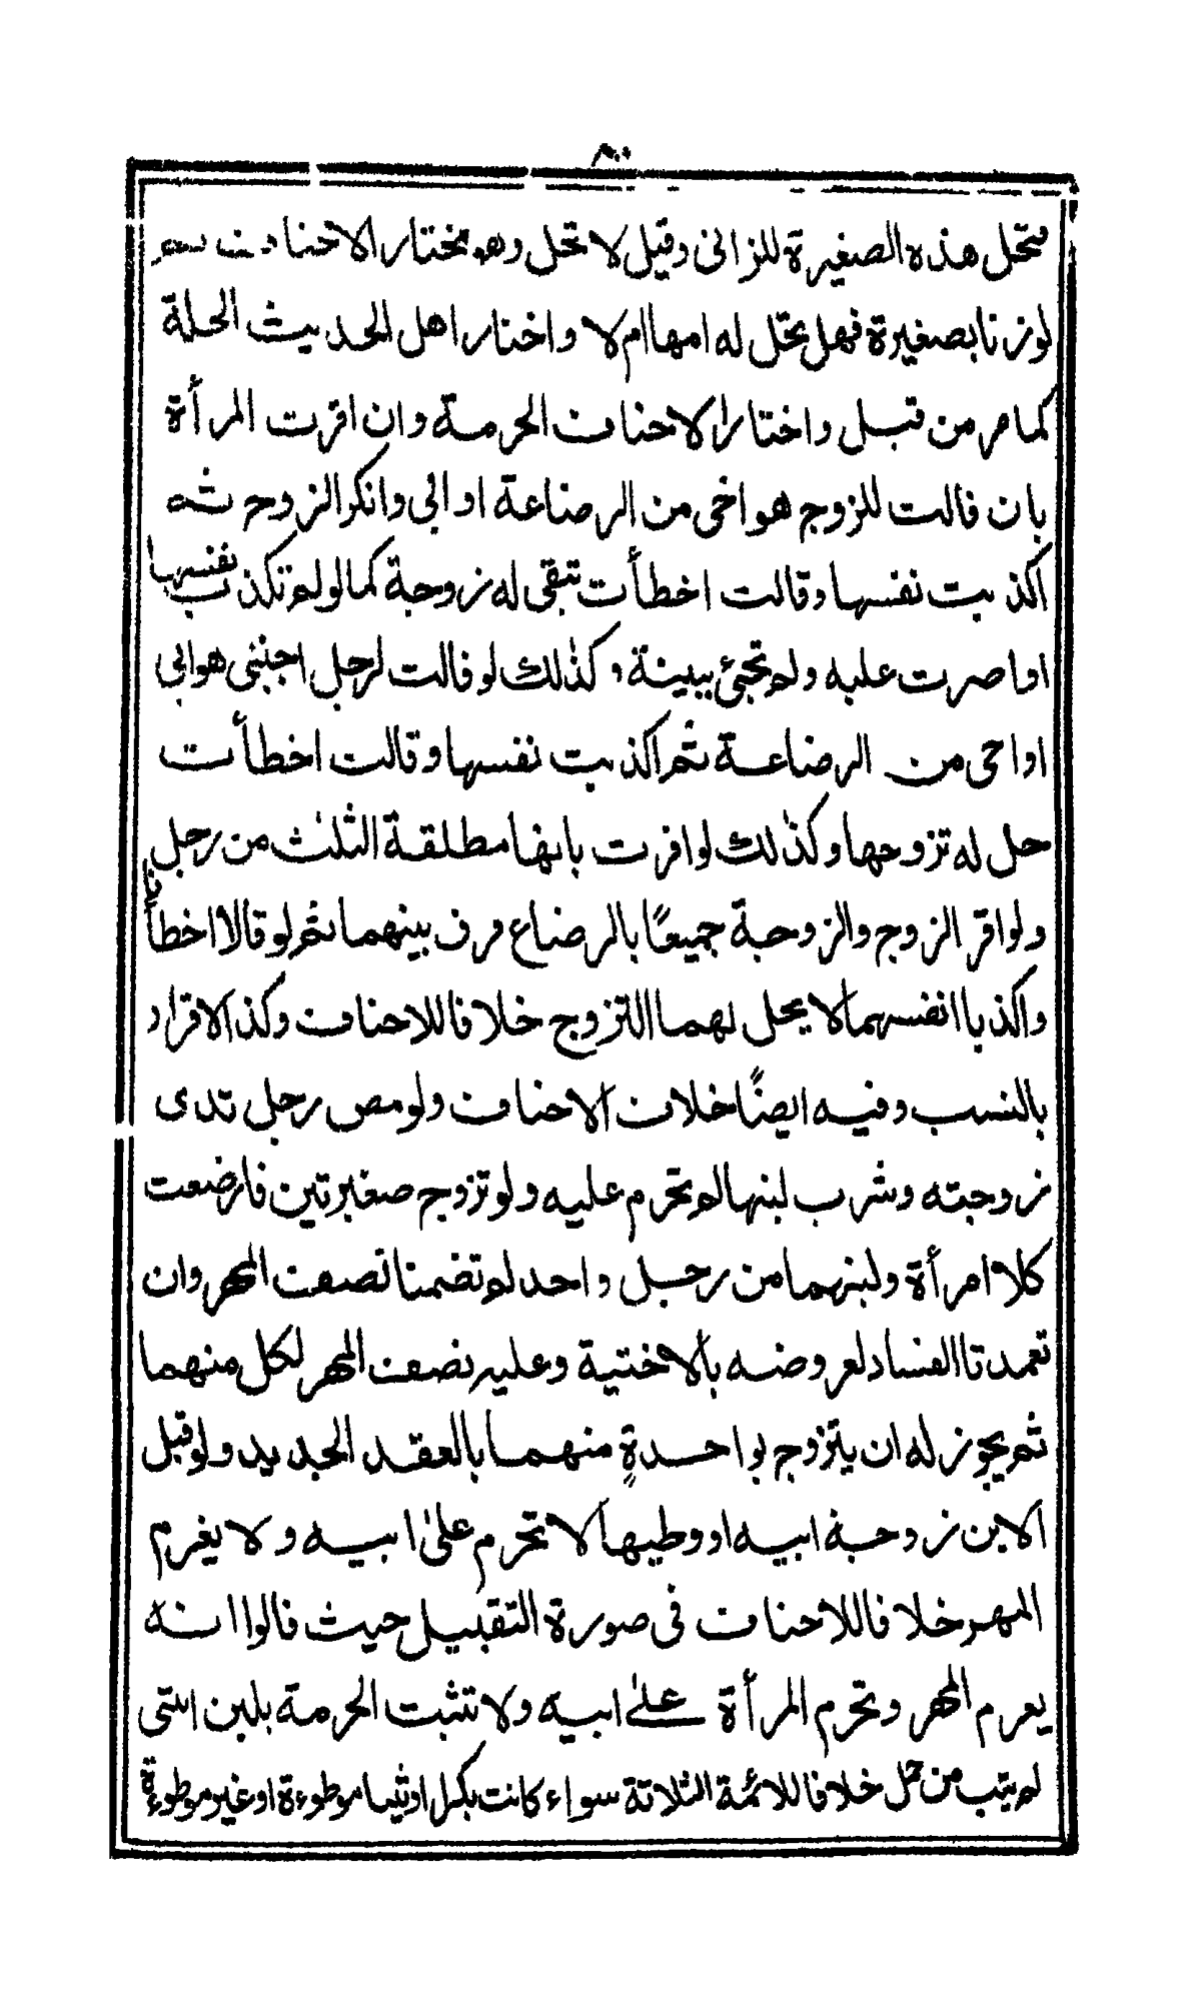 تحل هذه الصغيرة للزانى وقيل لا تحل وهو مختار الاحناف
لوزنا بصغيرة فهل يحل له امها ام لا واختار اهل الحديث الحلة
كما مر من قبل واختار الاحناف الحرمة وان اقرت المرأة
بان قالت للزوج هو اخى من الرضاعة او ابى وانكر الزوج ثم
اكذبت نفسها وقالت اخطأت تبقى له زوجة كما لو لم تكذب نفسها
او اصرت عليه ولم تجئ ببينة وكذلك لو قالت لرجل اجنبى هو ابى
او اخى من الرضاعة ثم اكذبت نفسها وقالت اخطأت
حل له تزوجها وكذلك لو اقرت بانها مطلقة الثلث من رجل
ولو اقر الزوج والزوجة جميعًا بالرضاع فرق بينهما ثم لو قالا اخطأنا
واكذبا انفسهما لا يحل لهما التزوج خلافا للاحناف وكذا الاقرار
بالنسب وفيه ايضًا خلاف الاحناف ولو مص رجل ثدى
زوجته وشرب لبنها لم تحرم عليه ولو تزوج صغيرتين فارضعت
كلا امرأة ولبنهما من رجل واحد لم تضمنا نصف المهر وان
تعمدتا الفساد لعروضه بالاختية وعليه نصف المهر لكل منهما
ثم يجوز له ان يتزوج بواحدةٍ منهما بالعقد الجديد ولو قبل
الابن زوجة ابيه او وطيها لا تحرم على ابيه ولا يغرم
المهر خلافا للاحناف فى صورة التقبيل حيث قالوا انه
يغرم المهر وتحرم المرأة على ابيه ولا تثبت الحرمة بلبن التى
لم يتب من حمل خلافا للائمة الثلاثة سواء كانت بكرا او ثيبا موطوءة او غير موطوءة